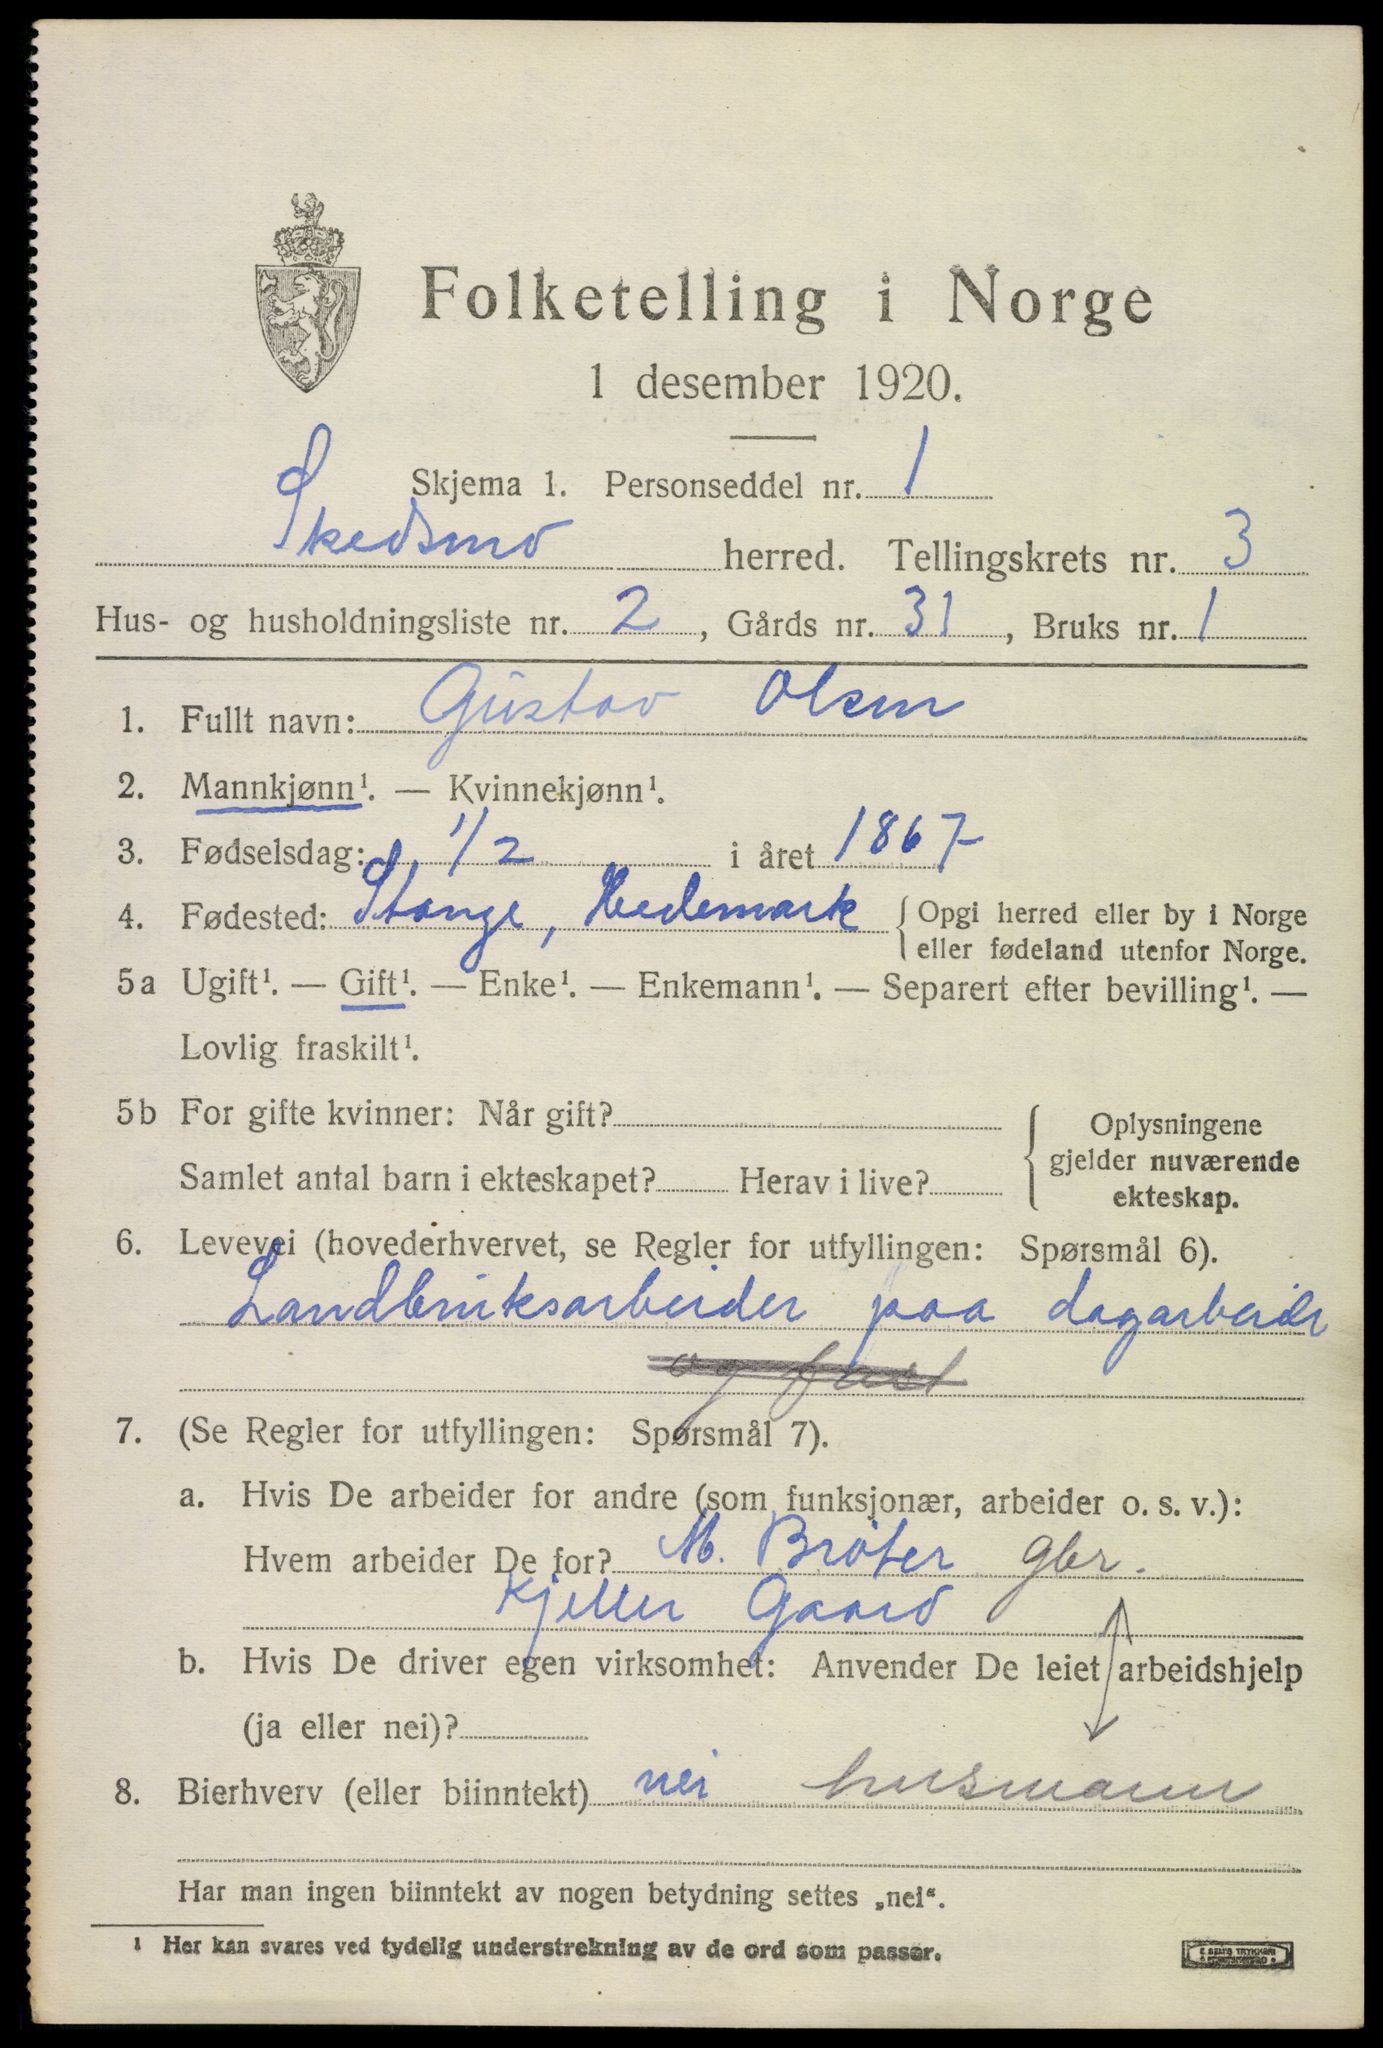 Folketelling i Norge
1 desember 1920.
Skjema 1. Personseddel nr. 1
Skedsmo herred. Tellingskrets nr. 3
Hus- og husholdningsliste nr. 2, Gårds nr. 31, Bruks nr. 1
1. Fullt navn: Gustav Olsen
2. Mannkjønn¹. — Kvinnekjønn¹.
3. Fødselsdag: 1/2 i året 1867
4. Fødested: Stange, Hedemark { Opgi herred eller by i Norge
eller fødeland utenfor Norge.
5a Ugift¹. — Gift¹. — Enke¹. — Enkemann¹. — Separert efter bevilling¹. —
Lovlig fraskilt¹.
5b For gifte kvinner: Når gift? { Oplysningene
gjelder nuværende
Samlet antal barn i ekteskapet? Herav i live?
ekteskap.
6. Levevei (hovederhvervet, se Regler for utfyllingen: Spørsmål 6).
Landbruksarbeider paa dagarbeide
og fast
7. (Se Regler for utfyllingen: Spørsmål 7).
a. Hvis De arbeider for andre (som funksjonær, arbeider o. s. v.):
Hvem arbeider De for? M. Bröter gbr.
Kjeller Gaard
b. Hvis De driver egen virksomhet: Anvender De leiet arbeidshjelp
(ja eller nei)?
8. Bierhverv (eller biinntekt) nei husmann
Har man ingen biinntekt av nogen betydning settes „nei“.
¹ Her kan svares ved tydelig understrekning av de ord som passer.